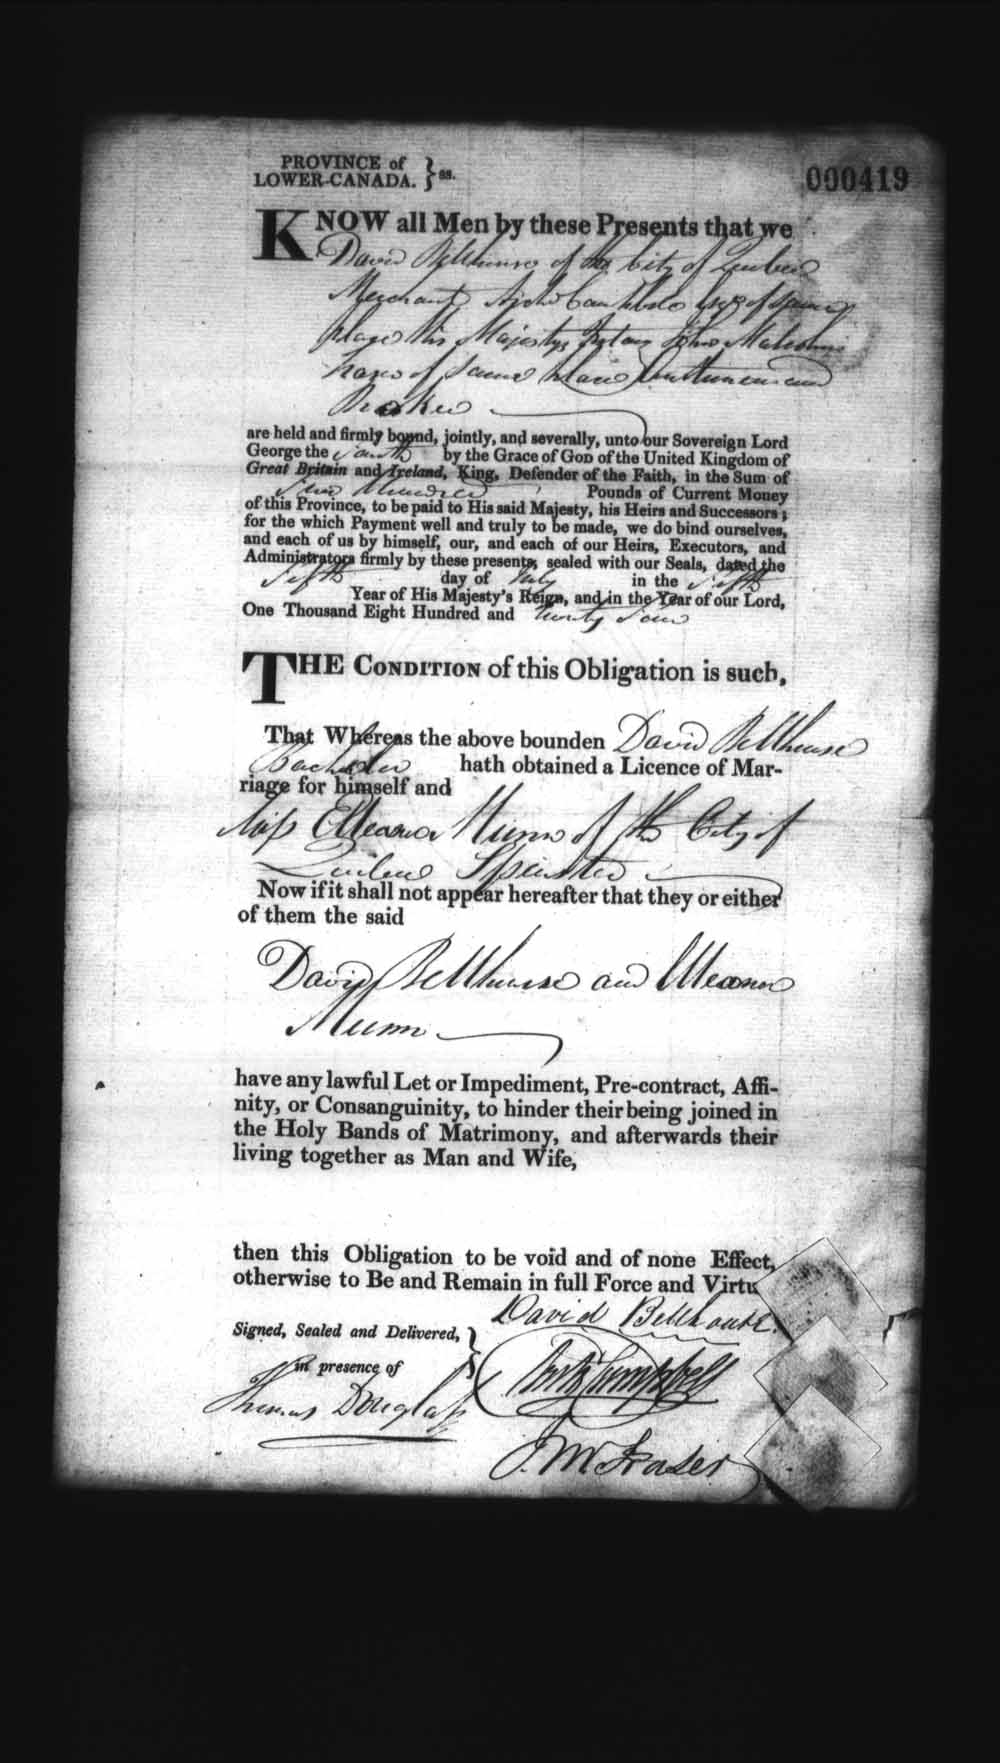 PROVINCE of
LOWER-CANADA. } ss.
000419
KNOW all Men by these Presents that we
David Bellhouse of the City of Quebec
Merchant Archd Campbell Esqr of same
place His Majestys Notary John Malcolm
Fraser of same place Gentleman and
Broker
are held and firmly bound, jointly, and severally, unto our Sovereign Lord
George the fourth by the Grace of GOD of the United Kingdom of
Great Britain and Ireland, King, Defender of the Faith, in the Sum of
Hundred Pounds of Current Money
of this Province, to be paid to His said Majesty, his Heirs and Successors;
for the which Payment well and truly to be made, we do bind ourselves,
and each of us by himself, our, and each of our Heirs, Executors, and
Administrators firmly by these presents, sealed with our Seals, dated the
fifth day of July in the fifth
Year of His Majesty's Reign, and in the Year of our Lord,
One Thousand Eight Hundred and twenty four
THE CONDITION of this Obligation is such,
That Whereas the above bounden David Bellhouse
Bachelor hath obtained a Licence of Mar-
riage for himself and
Miss Elleanor Munn of the City of
Quebec Spinster
Now if it shall not appear hereafter that they or either
of them the said
David Bellhouse and Elleanor
Munn
have any lawful Let or Impediment, Pre-contract, Affi-
nity, or Consanguinity, to hinder their being joined in
the Holy Bands of Matrimony, and afterwards their
living together as Man and Wife,
then this Obligation to be void and of none Effect,
otherwise to Be and Remain in full Force and Virtu
David Bellhouse.
Signed, Sealed and Delivered, }
in presence of
Archd Campbell
Thomas Douglass
J. M. Fraser